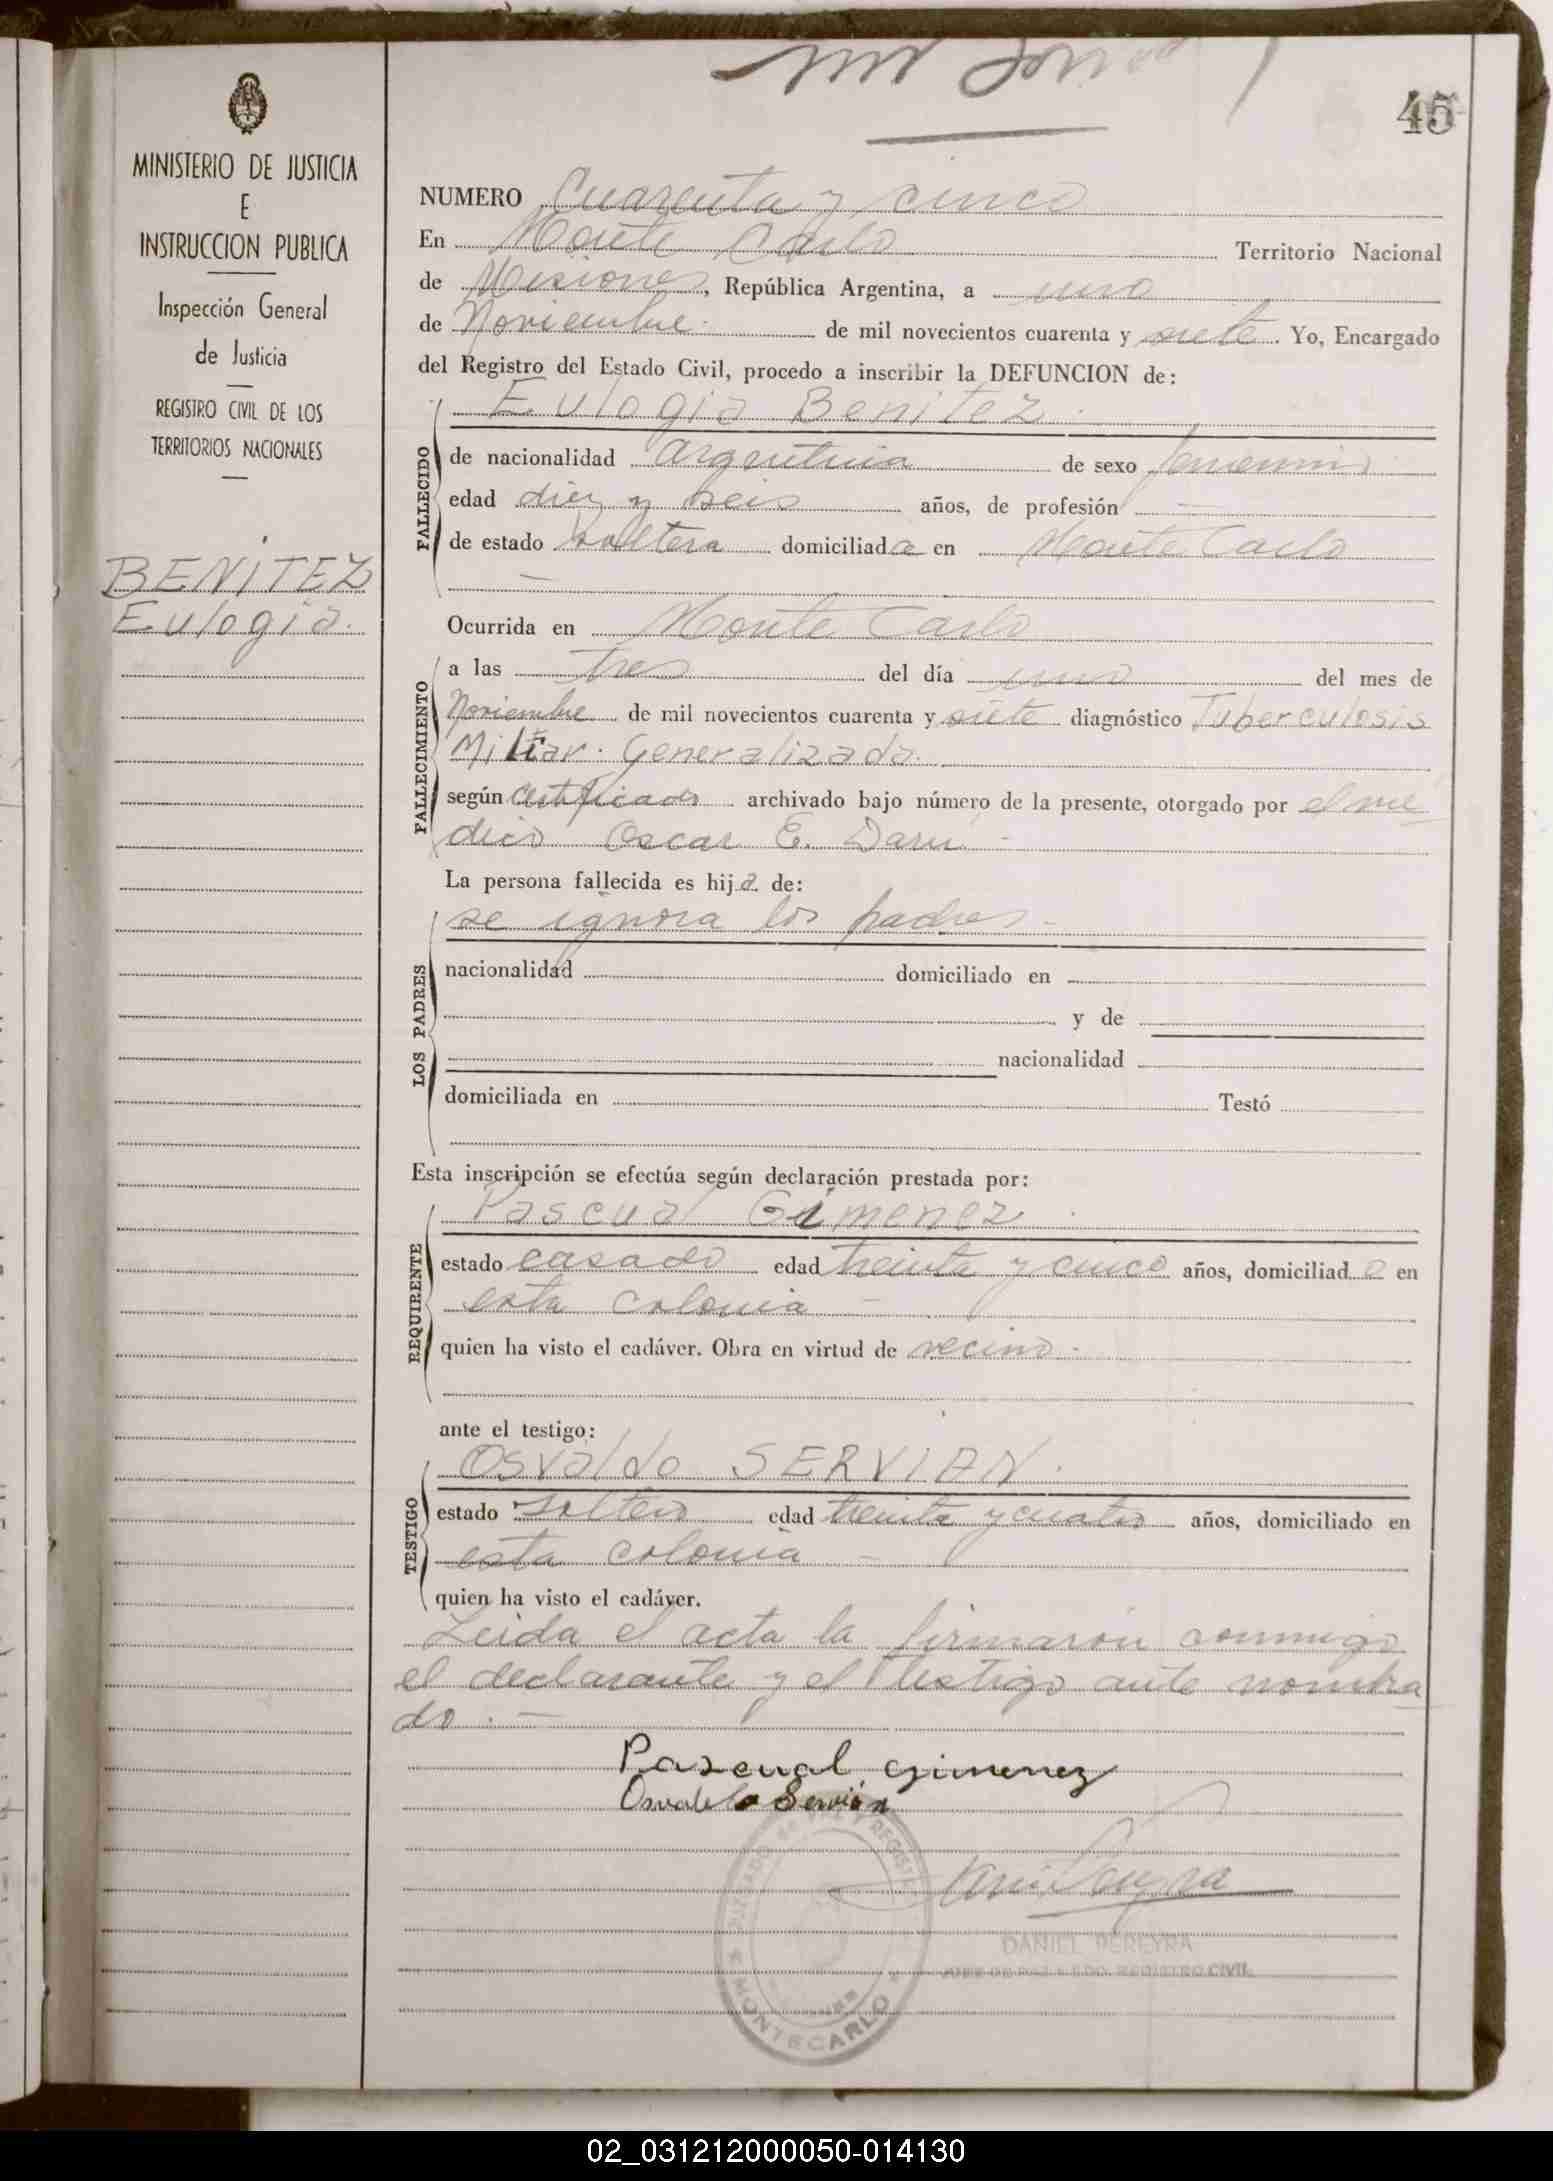 45
MINISTERIO DE JUSTICIA
E
INSTRUCCION PUBLICA
Inspección General
de Justicia
REGISTRO CIVIL DE LOS
TERRITORIOS NACIONALES
BENITEZ
Eulogia.
NUMERO Cuarenta y cinco
En Monte Carlo Territorio Nacional
de Misiones, República Argentina, a uno
de Noviembre de mil novecientos cuarenta y siete. Yo, Encargado
del Registro del Estado Civil, procedo a inscribir la DEFUNCION de:
Eulogia Benitez.
FALLECIDO
de nacionalidad argentina de sexo femenino
edad diez y seis años, de profesión —
de estado soltera domiciliada en Monte Carlo
—
Ocurrida en Monte Carlo
FALLECIMIENTO
a las tres del día uno del mes de
Noviembre de mil novecientos cuarenta y siete diagnóstico Tuberculosis
Miliar. Generalizada.
según certificado archivado bajo número de la presente, otorgado por el mé
dico Oscar E. Daru -
La persona fallecida es hija de:
LOS PADRES
se ignora los padres -
nacionalidad domiciliado en
y de
nacionalidad
domiciliada en Testó
Esta inscripción se efectúa según declaración prestada por:
REQUIRENTE
Pascual Gimenez.
estado casado edad treinta y cinco años, domiciliado en
esta colonia -
quien ha visto el cadáver. Obra en virtud de vecino.
ante el testigo:
TESTIGO
Osvaldo SERVIAN.
estado soltero edad treinta y cuatro años, domiciliado en
esta colonia -
quien ha visto el cadáver.
Leida el acta la firmaron conmigo
el declarante y el testigo ante nombra
do. —
Pascual Gimenez
Osvaldo Servián
JUZGADO DE PAZ Y REGISTRO
MONTECARLO
DANIEL PEREYRA
JUEZ DE PAZ Y EDO. REGISTRO CIVIL
02_031212000050-014130